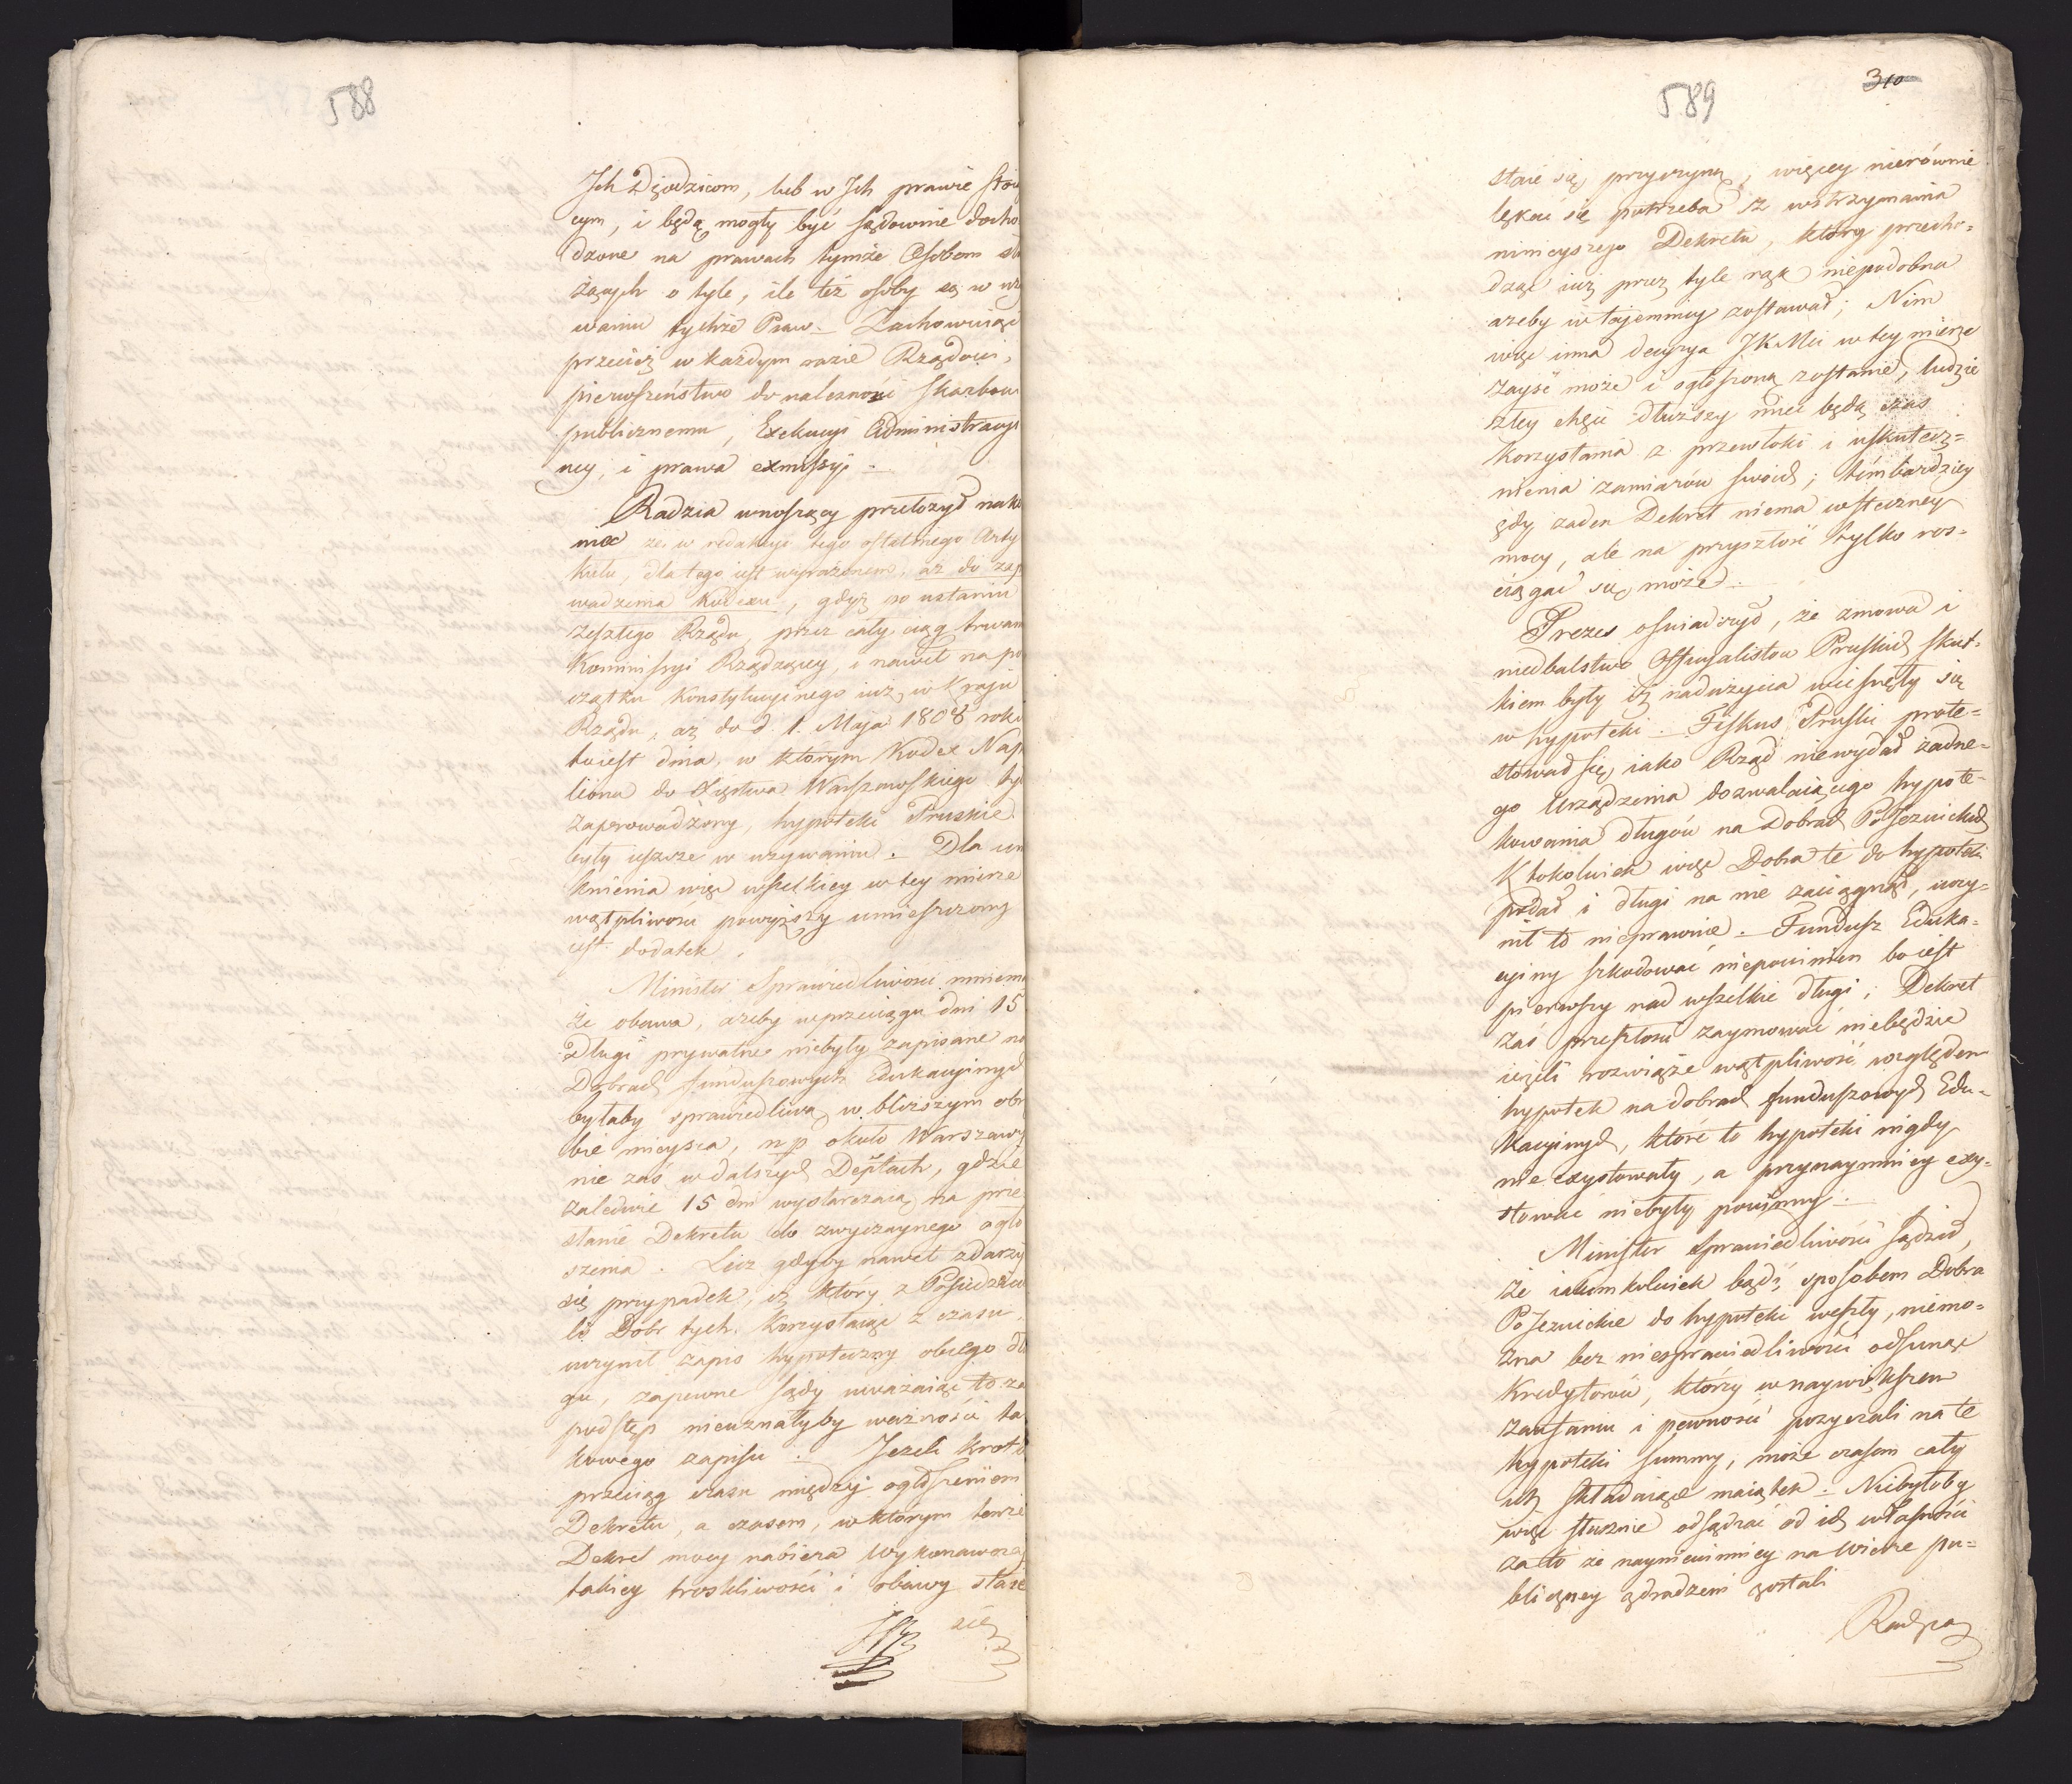 588
Ich Dziedzicom, lub w Ich prawie stoią
cym, i będą mogły być sądownie docho
dzone na prawach tymże Osobom słu
żących o tyle, ile też osoby są w uży
waniu tychże Praw. Zachowuiąc
przecież w każdym razie Rządowi,
pierwszeństwo do należności skarbow
publicznemu, Exekucyi Administracyi
ney, i prawa exmissyi.
Radzca wnoszący przełożył nako
niec że w redakcyi tego ostatniego Arty
kułu, dlatego iest wyrażonem, aż do zap
wadzenia Kodexu, gdyż po ustaniu
zeszłego Rządu, przez cały ciąg trwan
Kommissyi Rządzącey, i nawet na po
czątku Konstytucyinego iuż w Kraju
Rządu, aż do d. 1. Maja 1808 roku
to iest dnia, w którym Kodex Nap
liona do Xięstwa Warszawskiego by
zaprowadzony, hypoteki Pruskie
były ieszcze w używaniu. Dla un
knienia więc wszelkiey w tey mierze
wątpliwości powyższy umieszczony
iest dodatek.
Minister Sprawiedliwości mniema
że obawa, ażeby w przeciągu dni 15
Długi prywatne niebyły zapisane na
Dobrach funduszowych Edukacyinych
byłaby sprawiedliwą w bliższym obr
bie mieysca, np około Warszawy
nie zaś w dalszych Deptach, gdzie
zaledwie 15 dni wystarczaią na prze
słanie Dekretu do zwyczaynego ogło
szenia. Lecz gdyby nawet zdarzył
się przypadek, iż który z Posiedzicie
li Dobr tych, korzystaiąc z czasu
uczynił zapis hypoteczny obcego dłu
gu, zapewne sądy uważaiąc to za
podstęp nieuznałyby ważności ta
kowego zapisu. Jeżeli krotki
przeciąg czasu między ogłoszeniem
Dekretu, a czasem, w którym tenże
Dekret mocy nabiera wykonawczey
takiey troskliwości i obawy staie
się
589
310
staie się przyczyną, więcey nierównie
lękać się potrzeba z wstrzymania
ninieyszego Dekretu, który przecho=
dząc iuż przez tyle rąk niepodobna
ażeby w tajemnicy zostawał; Nim
więc inna decyzya JKMci w tey mierze
zayść może i ogłoszoną zostanie, ludzie
złey chęci dłuższy mieć będą czas
korzystania z przewłoki i uskutecz=
nienia zamiarów swoich; tém bardziey
gdy żaden Dekret niema wsteczney
mocy, ale na przyszłość tylko roz=
ciągać się może.
Prezes oświadczył, że zmowa i
niedbalstwo Officyalistow Pruskich skut=
kiem były iż nadużycia wcisnęły się
w hypoteki. Fiskus Pruski prote=
stował się, iako Rząd niewydał żadne=
go Urządzenia dozwalaiącego hypote=
kowania długów na Dobrach PoJezuickich
Ktokolwiek więc Dobra te do hypoteki
podał i długi na nie zaciągnął, uczy=
nił to nieprawnie. Fundusz Eduka=
cyiny szkodować niepowinien bo iest
pierwszy nad wszelkie długi; Dekret
zaś przeszłości zaymować niebędzie
ieżeli rozwiąże wątpliwość względem
hypotek na dobrach funduszowych Edu=
kacyinych, które to hypoteki nigdy
nie exystowały, a przynaymniey exy=
stować niebyły powinny.
Minister Sprawiedliwości sądził,
że iakimkolwiek bądź sposobem Dobra
PoJezuickie do hypoteki weszły, niemo=
żna bez niesprawiedliwości odsunąć
Kredytorów, którzy w naywiększem
zaufaniu i pewności pożyczali na te
hypoteki summy, może czasem cały
ich składaiące maiątek. Niebyłoby
więc słusznie odsądzać od ich własności
za to że nayniewinniey na wierze pu=
bliczney zdradzeni zostali
Radzca